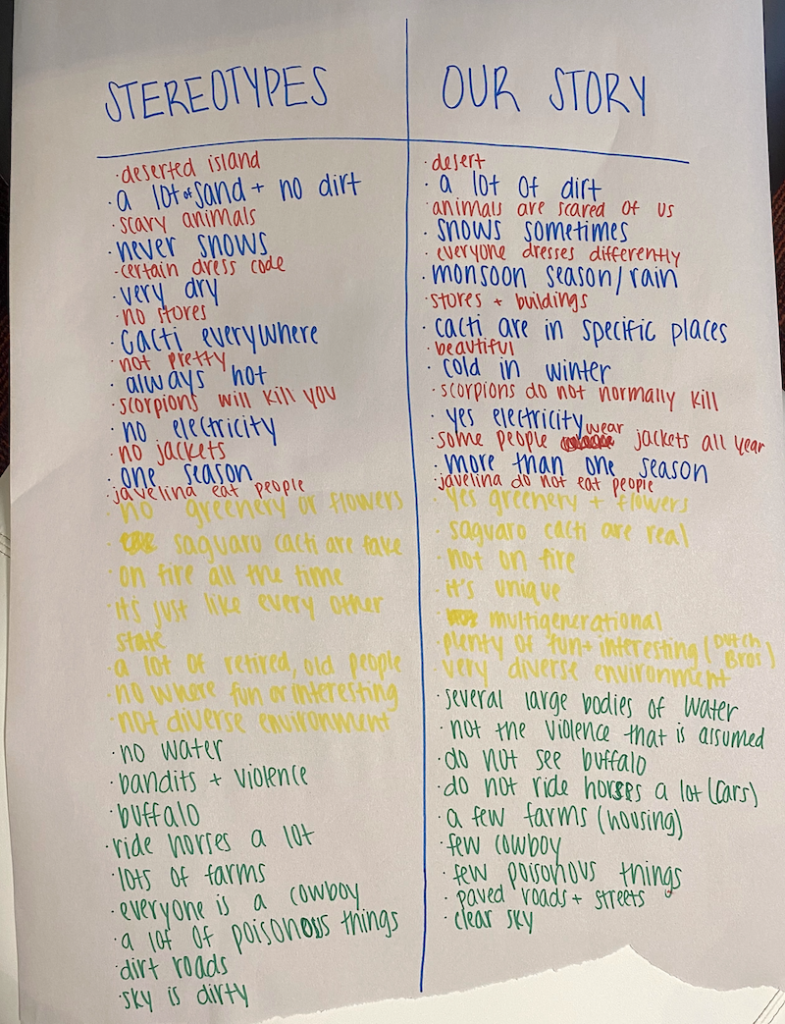 STEREOTYPES
· deserted island
· a lot of sand + no dirt
· scary animals
· never snows
· certain dress code
· very dry
· no stores
· cacti everywhere
· not pretty
· always hot
· scorpions will kill you
· no electricity
· no jackets
· one season
· javelina eat people
· no greenery or flowers
· saguaro cacti are fake
· on fire all the time
· it's just like every other
state
· a lot of retired, old people
· no where fun or interesting
· not diverse environment
· no water
· bandits + violence
· buffalo
· ride horses a lot
· lots of farms
· everyone is a cowboy
· a lot of poisonous things
· dirt roads
· sky is dirty
OUR STORY
· desert
· a lot of dirt
· animals are scared of us
· snows sometimes
· everyone dresses differently
· monsoon season/rain
· stores + buildings
· cacti are in specific places
· beautiful
· cold in winter
· scorpions do not normally kill
· yes electricity
· some people wear jackets all year
· more than one season
· javelina do not eat people
· yes greenery + flowers
· saguaro cacti are real
· not on fire
· it's unique
· multigenerational
· plenty of fun + interesting (Dutch Bros)
· very diverse environment
· several large bodies of water
· not the violence that is assumed
· do not see buffalo
· do not ride horses a lot (cars)
· a few farms (housing)
· few cowboy
· few poisonous things
· paved roads + streets
· clear sky